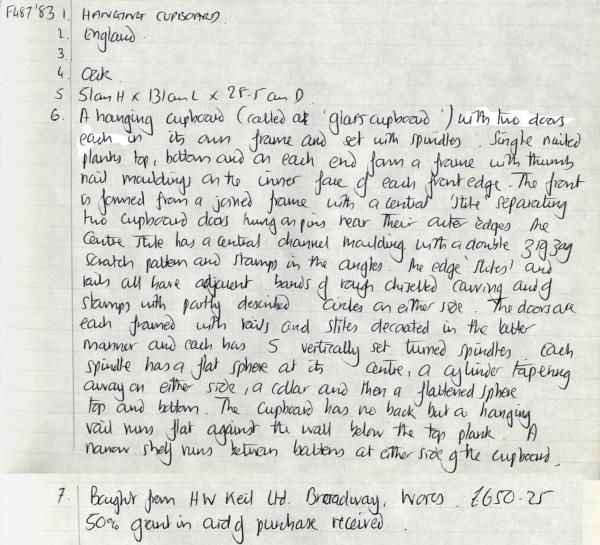 F487'83 1. HANGING CUPBOARD.
2. England.
3.
4. Oak.
5 51cm H x 131cm L x 28.5 cm D.
6. A hanging cupboard (called a 'glass cupboard') with two doors
each in its own frame and set with spindles. Single nailed
planks top, bottom and on each end form a frame with thumb
nail mouldings on the inner face of each front edge. The front
is formed from a joined frame with a central 'stile' separating
two cupboard doors hung on pins near their outer edges. The
centre stile has a central channel moulding with a double zigzag
scratch pattern and stamps in the angles. The edge 'stiles' and
rails all have adjacent bands of rough chiselled carving and of
stamps with partly described circles on either side. The doors are
each framed with rails and stiles decorated in the latter
manner and each has 5 vertically set turned spindles. Each
spindle has a flat sphere at its centre, a cylinder tapering
away on either side, a collar and then a flattened sphere
top and bottom. The cupboard has no back but a hanging
rail runs flat against the wall below the top plank. A
narrow shelf runs between battens at either side of the cupboard.
7. Bought from HW Keil Ltd. Broadway, Worcs. £650.25
50% grant in aid of purchase received.